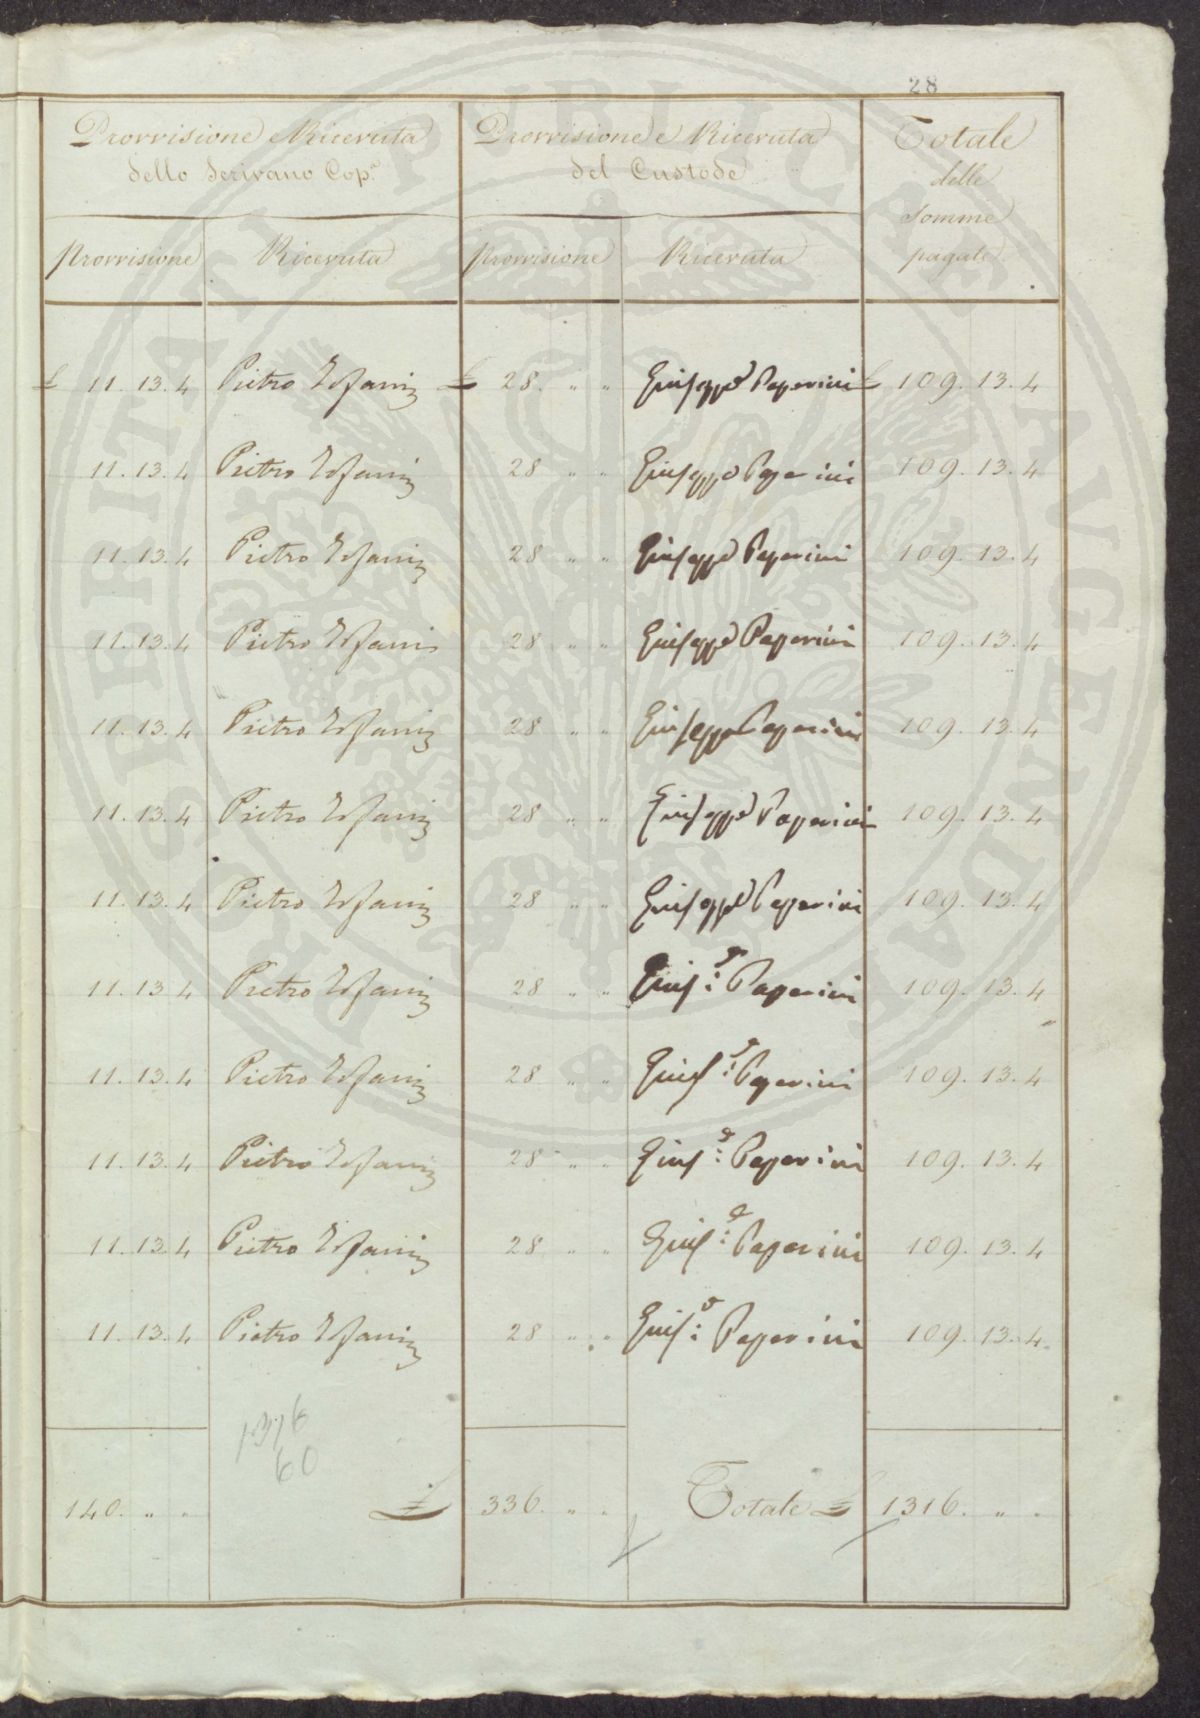 28
Provvisione e Ricevuta
dello Scrivano Cop.e
Provvisione e Ricevuta
del Custode
Totale
delle
Somme
pagate
Provvisione Ricevuta Provvisione Ricevuta
£ 11. 13. 4 Pietro £ 28. " " Giuseppe Paperini £ 109. 13. 4
11. 13. 4 Pietro 28 " " Giuseppe Paperini 109. 13. 4
11. 13. 4 Pietro 28 " " Giuseppe Paperini 109. 13. 4
11. 13. 4 Pietro 28 " " Giuseppe Paperini 109. 13. 4
11. 13. 4 Pietro 28 " " Giuseppe Paperini 109. 13. 4
11. 13. 4 Pietro 28 " " Giuseppe Paperini 109. 13. 4
11. 13. 4 Pietro 28 " " Giuseppe Paperini 109. 13. 4
11. 13. 4 Pietro 28 " " Gius:e Paperini 109. 13. 4
11. 13. 4 Pietro 28 " " Gius:e Paperini 109. 13. 4
11. 13. 4 Pietro 28 " " Gius:e Paperini 109. 13. 4
11. 13. 4 Pietro 28 " " Gius:e Paperini 109. 13. 4
11. 13. 4 Pietro 28 " " Gius:e Paperini 109. 13. 4
1316
60
140. " " £ 336. " " Totale £ 1316. " "